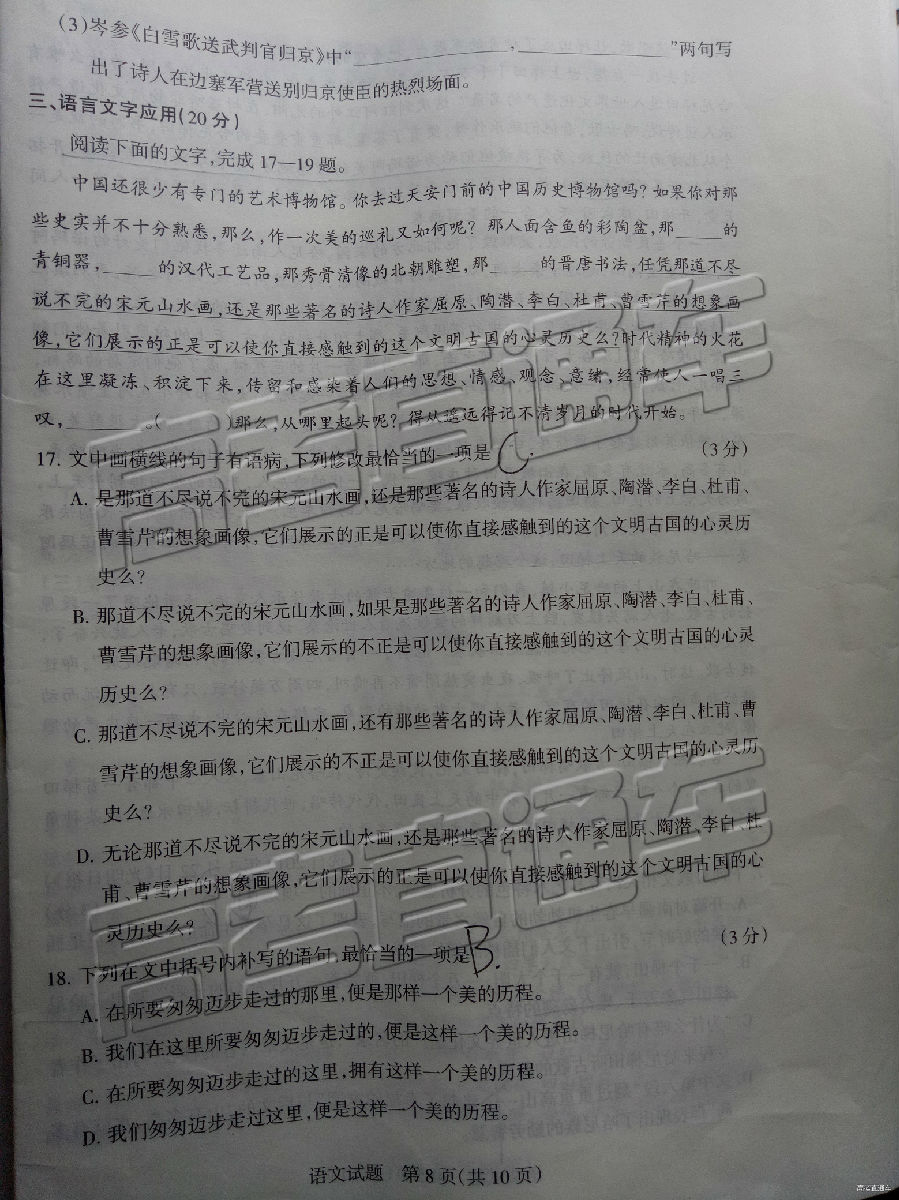 (3)岑参《白雪歌送武判官归京》中“____________,____________”两句写
出了诗人在边塞军营送别归京使臣的热烈场面。
三、语言文字应用(20分)
阅读下面的文字,完成17—19题。
中国还很少有专门的艺术博物馆。你去过天安门前的中国历史博物馆吗?如果你对那
些史实并不十分熟悉,那么,作一次美的巡礼又如何呢?那人面含鱼的彩陶盆,那____的
青铜器,____的汉代工艺品,那秀骨清像的北朝雕塑,那____的晋唐书法,任凭那道不尽
说不完的宋元山水画,还是那些著名的诗人作家屈原、陶潜、李白、杜甫、曹雪芹的想象画
像,它们展示的正是可以使你直接感触到的这个文明古国的心灵历史么?时代精神的火花
在这里凝冻、积淀下来,传留和感染着人们的思想、情感、观念、意绪,经常使人一唱三
叹,______。(______)那么,从哪里起头呢?得从遥远得记不清岁月的时代开始。
17. 文中画横线的句子有语病,下列修改最恰当的一项是 C (3分)
A. 是那道不尽说不完的宋元山水画,还是那些著名的诗人作家屈原、陶潜、李白、杜甫、
曹雪芹的想象画像,它们展示的正是可以使你直接感触到的这个文明古国的心灵历
史么?
B. 那道不尽说不完的宋元山水画,如果是那些著名的诗人作家屈原、陶潜、李白、杜甫、
曹雪芹的想象画像,它们展示的不正是可以使你直接感触到的这个文明古国的心灵
历史么?
C. 那道不尽说不完的宋元山水画,还有那些著名的诗人作家屈原、陶潜、李白、杜甫、曹
雪芹的想象画像,它们展示的不正是可以使你直接感触到的这个文明古国的心灵历
史么?
D. 无论那道不尽说不完的宋元山水画,还是那些著名的诗人作家屈原、陶潜、李白、杜
甫、曹雪芹的想象画像,它们展示的正是可以使你直接感触到的这个文明古国的心
灵历史么?
18. 下列在文中括号内补写的语句,最恰当的一项是 B. (3分)
A. 在所要匆匆迈步走过的那里,便是那样一个美的历程。
B. 我们在这里所要匆匆迈步走过的,便是这样一个美的历程。
C. 在所要匆匆迈步走过的这里,拥有这样一个美的历程。
D. 我们匆匆迈步走过这里,便是这样一个美的历程。
语文试题 第8页(共10页)
高考直通车
高考直通车
高考直通车